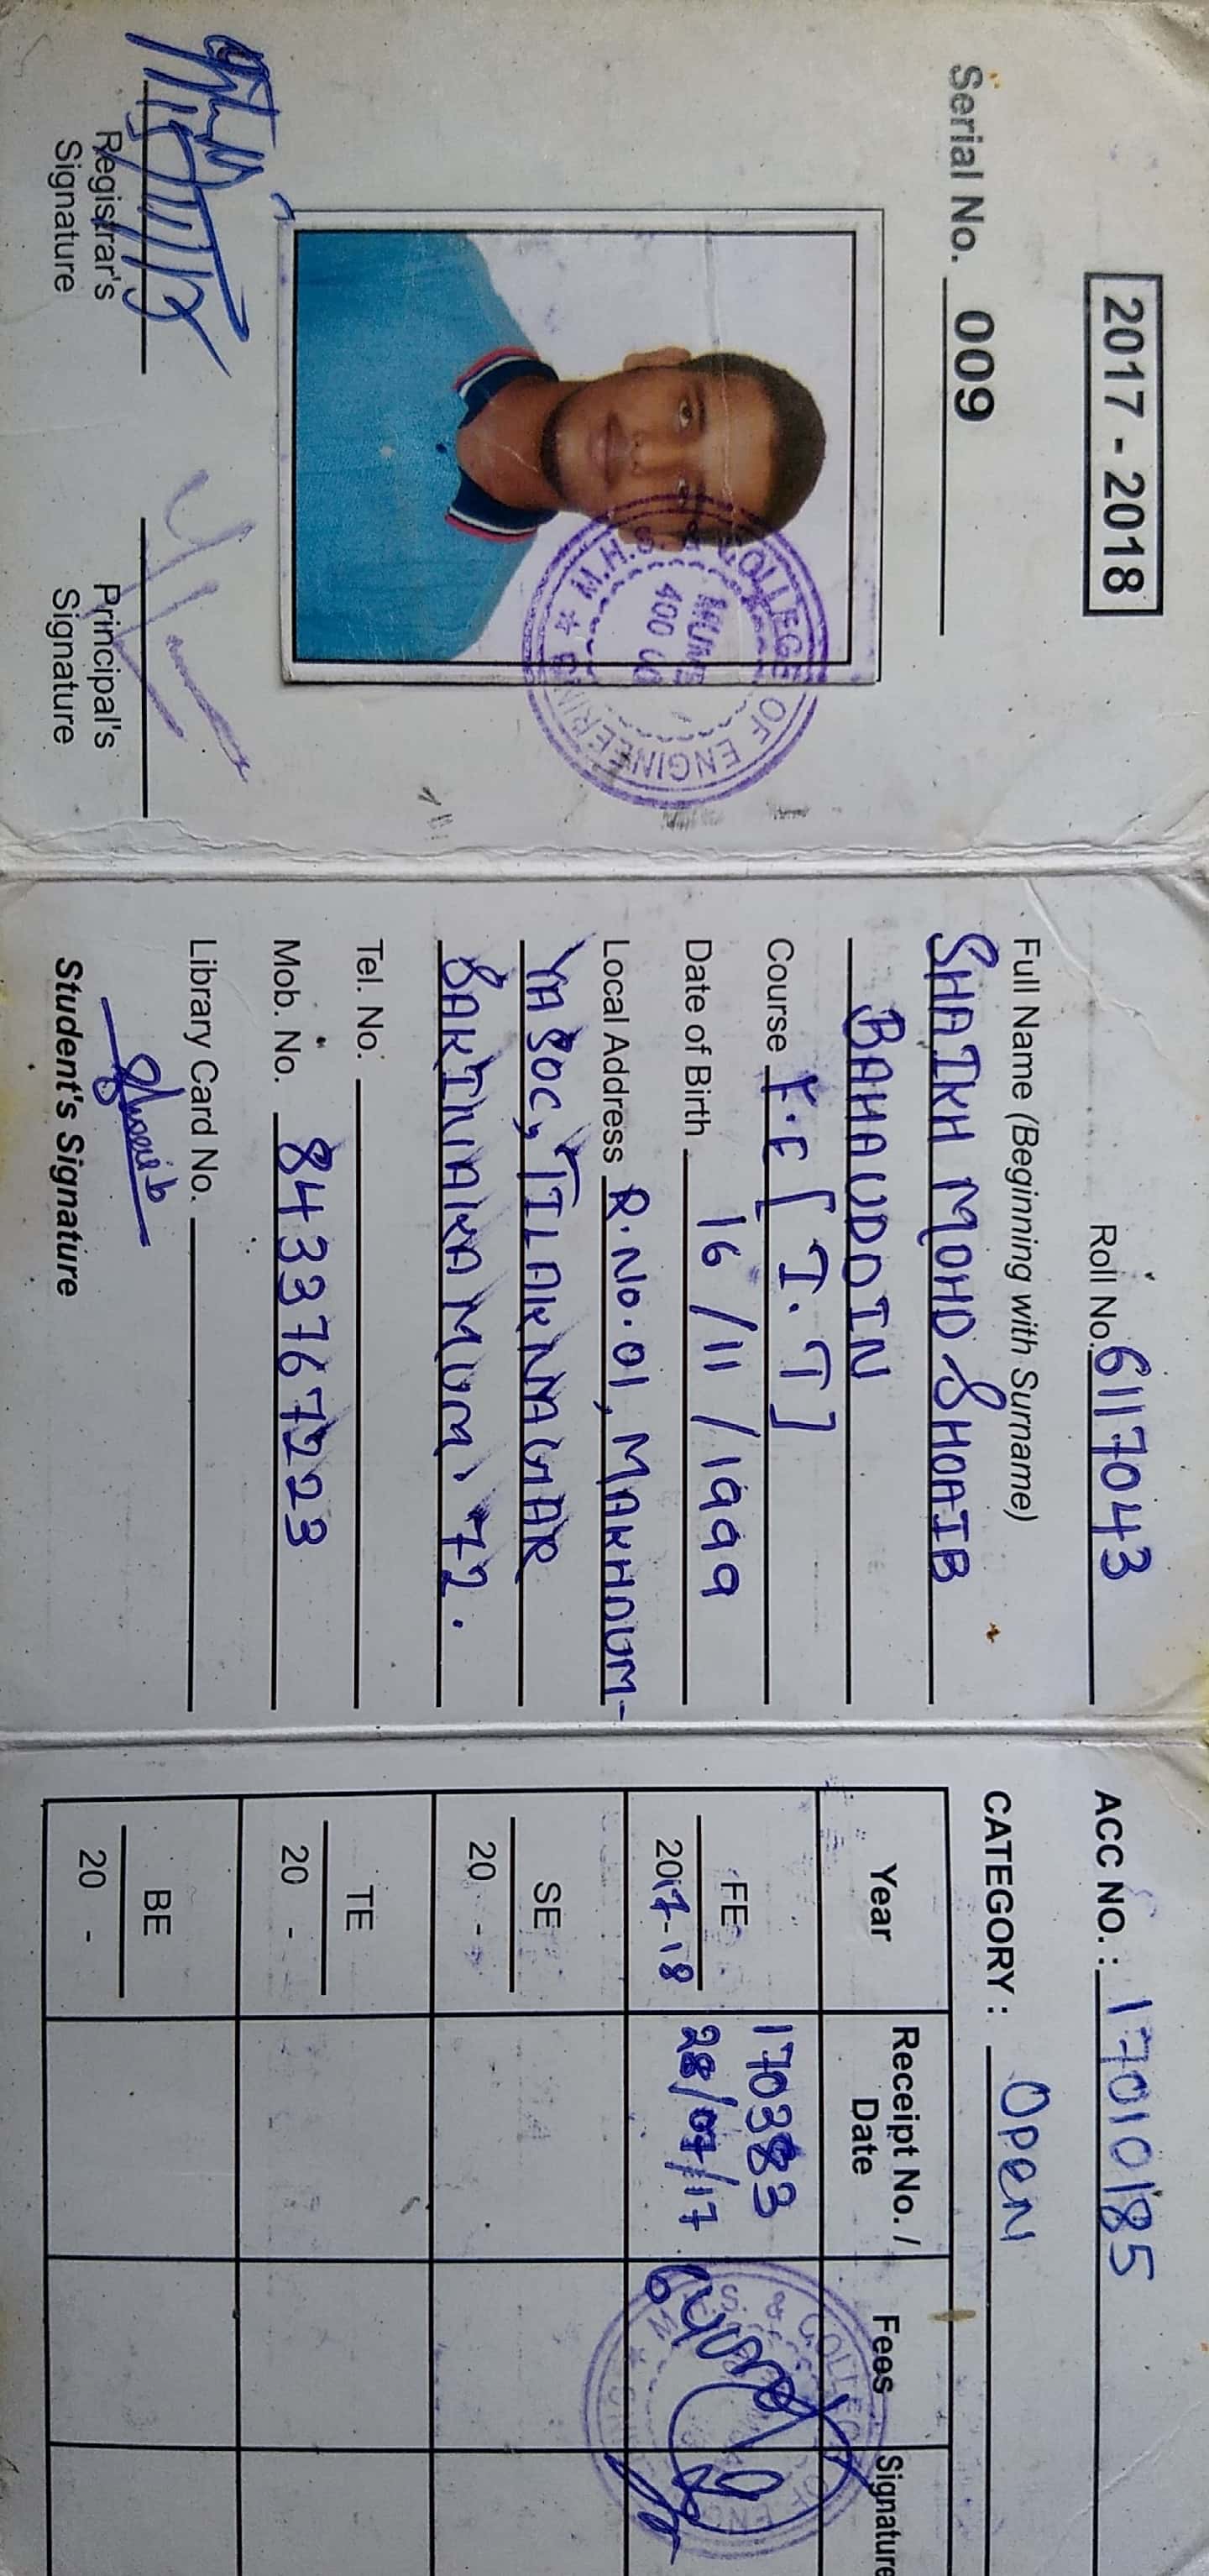 2017 - 2018
Serial No. 009
M.H. COLLEGE OF ENGINEERING
400
Registrar's
Signature
Principal's
Signature
Roll No. 6117043
Full Name (Beginning with Surname)
SHAIKH MOHD SHOAIB
BAHAUDDIN
Course F.E [I.T]
Date of Birth 16/11/1999
Local Address R.No.01, MAKHDUM-
SOC, TILAKNAGAR
SAKINAKA MUM. 72.
Tel. No.
Mob. No. 8433767223
Library Card No.
Shoaib
Student's Signature
ACC NO. : 17010185
CATEGORY : OPEN
Year Receipt No. / Date Fees Signature
FE 2017-18 17383 28/07/17
SE 20 -
TE 20 -
BE 20 -